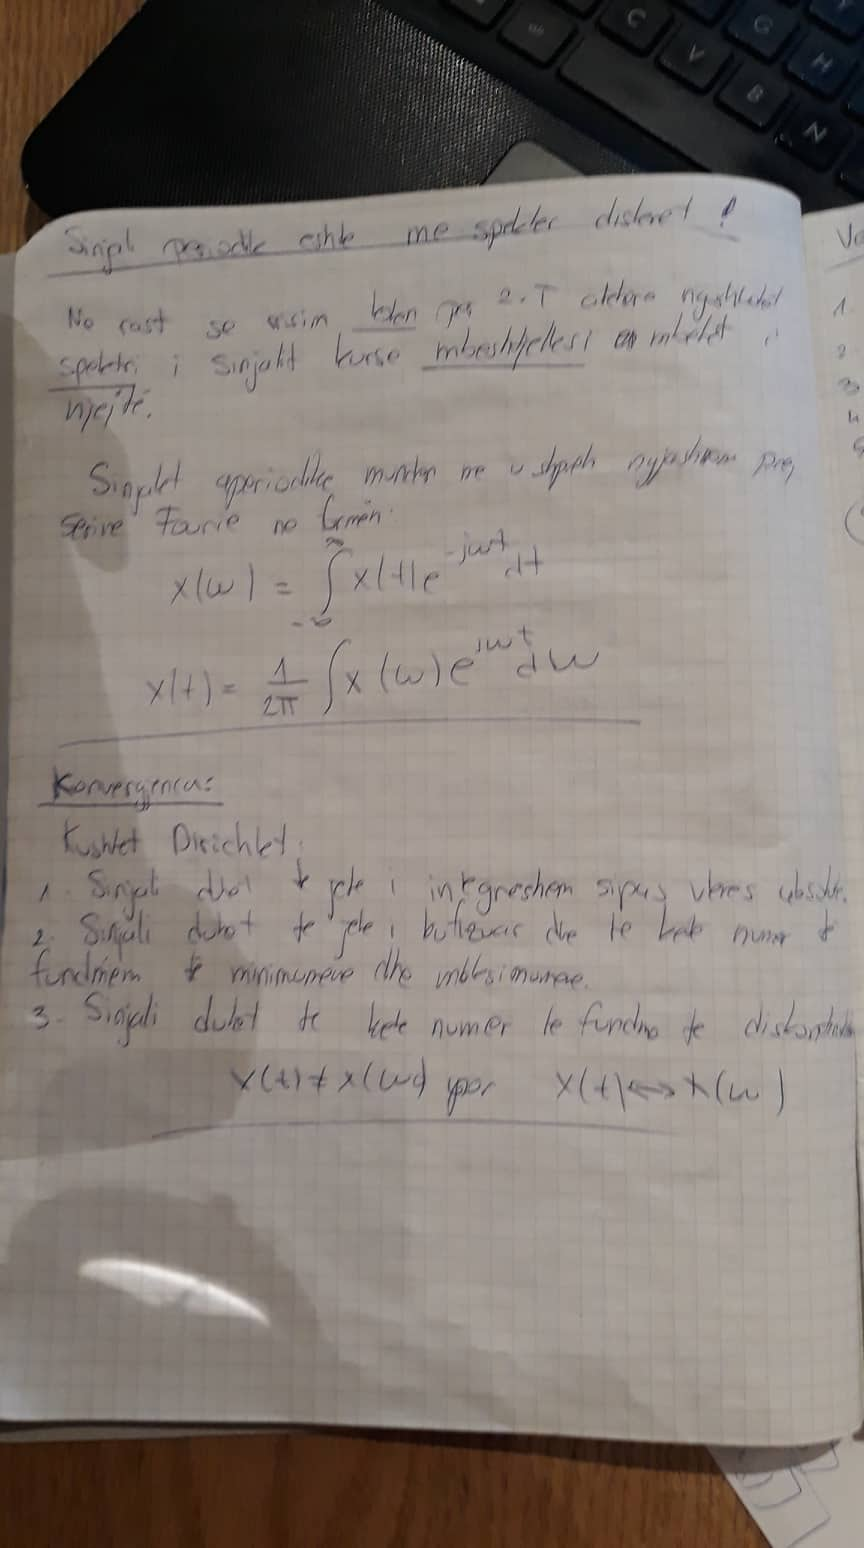 Sinjali periodik eshte me spekter diskret !
Ne rast se rrisim kohen per 2.T atehere ngushtohet
spektri i sinjalit kurse mbeshtjellesi mbetet i
njejtë.
Sinjalet aperiodike munden me u shpreh nyjashtem prej
serive Fourie ne formën:
x(ω) = ∫ x(t)e^-jωt dt
-∞ ∞
x(t) = 1/2π ∫ x(ω)e^jωt dω
Konvergjenca:
Kushtet Dirichlet:
1. Sinjali duhet te jete i integrueshem sipas vleres absolute.
2. Sinjali duhet te jete i kufizuar dhe te kete numer te
fundmem te minimumeve dhe maksimumeve.
3. Sinjali duhet te kete numer te fundm te diskontinu
x(t) ≠ x(ω) por x(t) ↔ x(ω)
V
1.
2.
3
4
5
C V B G H N